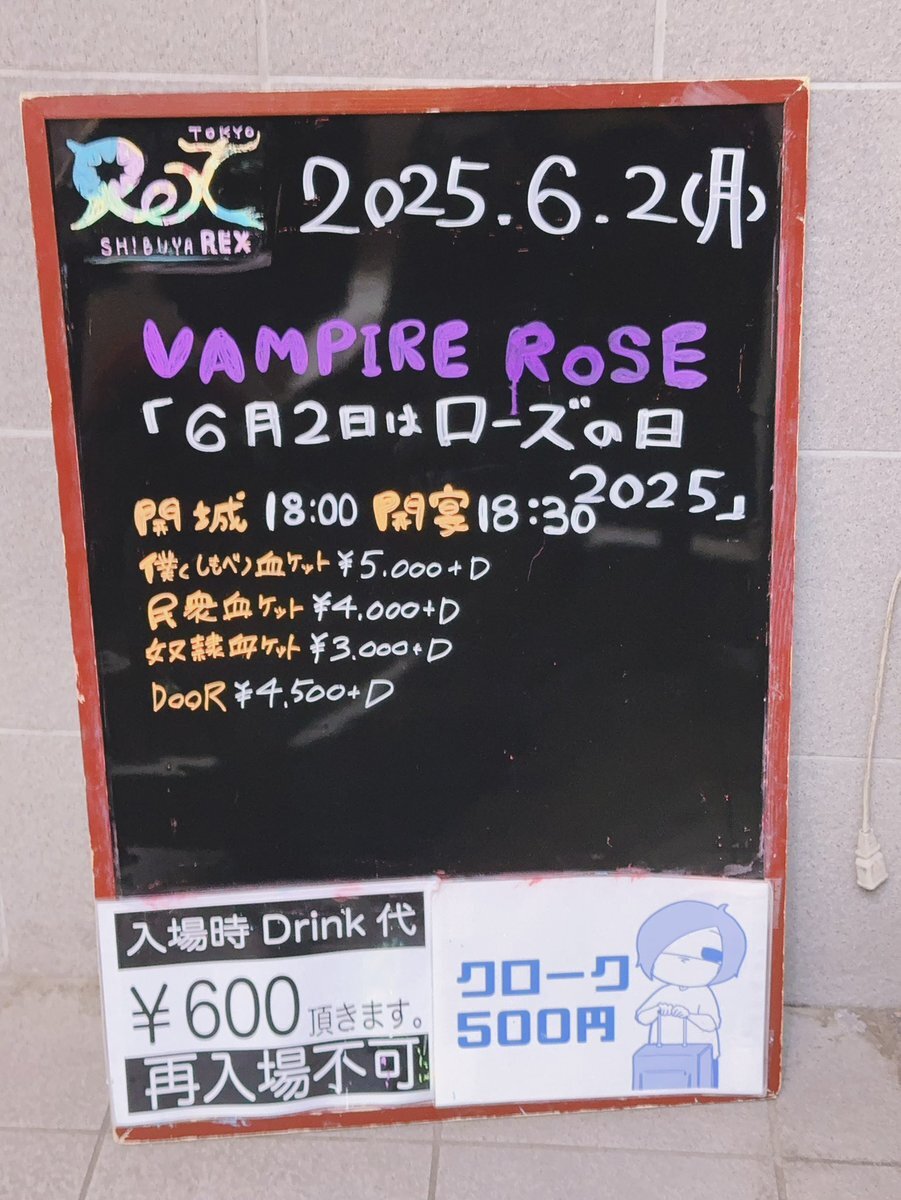 TOKYO
ReX
SHIBUYA REX
2025.6.2(月)
VAMPIRE ROSE
「6月2日はローズの日
2025」
開城 18:00 開宴18:30
僕(しもべ)血ケット ¥5.000+D
民衆血ケット ¥4,000+D
奴隷血ケット ¥3.000+D
DOOR ¥4,500+D
入場時 Drink 代
¥600頂きます。
再入場不可
クローク
500円